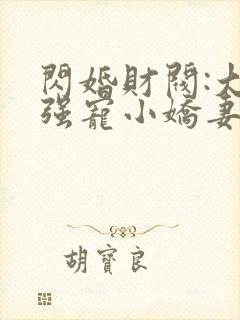 閃婚財閥:大
强寵小嬌妻
胡寶良